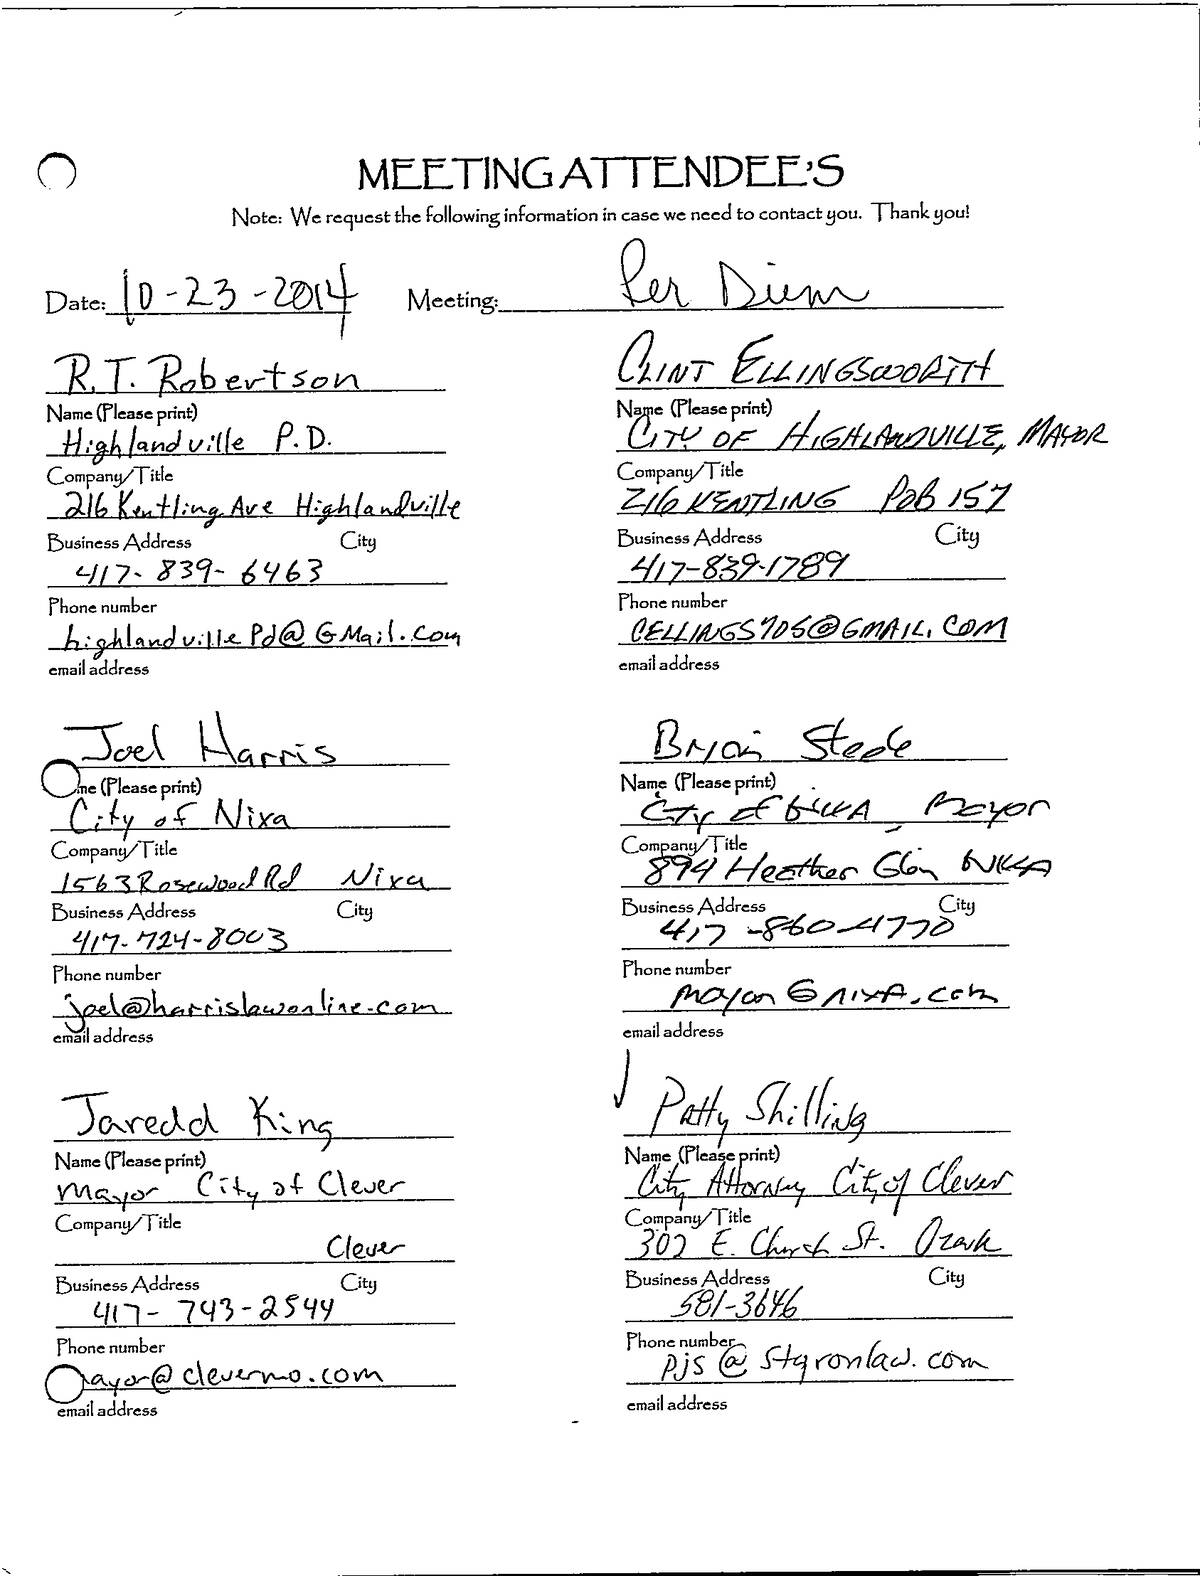 MEETING ATTENDEE'S
Note: We request the following information in case we need to contact you. Thank you!
Date: 10-23-2014 Meeting: Per Diem
R.T. Robertson
Name (Please print)
Highlandville P.D.
Company/Title
216 Kentling Ave Highlandville
Business Address City
417-839-6463
Phone number
highlandvillePd@GMail.com
email address
CLINT ELLINGSWORTH
Name (Please print)
CITY OF HIGHLANDVILLE, MAYOR
Company/Title
216 KENTLING POB 157
Business Address City
417-839-1789
Phone number
CELLINGS705@GMAIL.COM
email address
Joel Harris
me (Please print)
City of Nixa
Company/Title
1563 Rosewood Rd Nixa
Business Address City
417-724-8003
Phone number
joel@harrislawonline.com
email address
Brian Steele
Name (Please print)
City of Nixa, Mayor
Company/Title
894 Heather Glen Nixa
Business Address City
417-860-4770
Phone number
mayor@nixa.com
email address
Jaredd King
Name (Please print)
Mayor City of Clever
Company/Title
Clever
Business Address City
417-743-2544
Phone number
ayor@clevermo.com
email address
Patty Shilling
Name (Please print)
City Attorney City of Clever
Company/Title
302 E. Church St. Ozark
Business Address City
581-3646
Phone number
pjs@styronlaw.com
email address